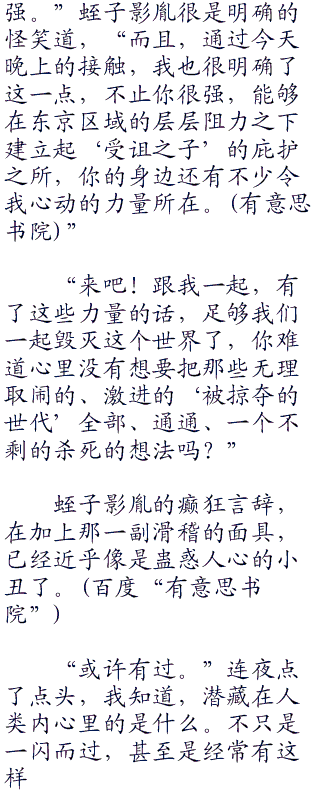 强。”蛭子影胤很是明确的
怪笑道，“而且，通过今天
晚上的接触，我也很明确了
这一点，不止你很强，能够
在东京区域的层层阻力之下
建立起‘受诅之子’的庇护
之所，你的身边还有不少令
我心动的力量所在。(有意思
书院)”
“来吧！跟我一起，有
了这些力量的话，足够我们
一起毁灭这个世界了，你难
道心里没有想要把那些无理
取闹的、激进的‘被掠夺的
世代’全部、通通、一个不
剩的杀死的想法吗？”
蛭子影胤的癫狂言辞，
在加上那一副滑稽的面具，
已经近乎像是蛊惑人心的小
丑了。(百度“有意思书
院”)
“或许有过。”连夜点
了点头，我知道，潜藏在人
类内心里的是什么。不只是
一闪而过，甚至是经常有这
样